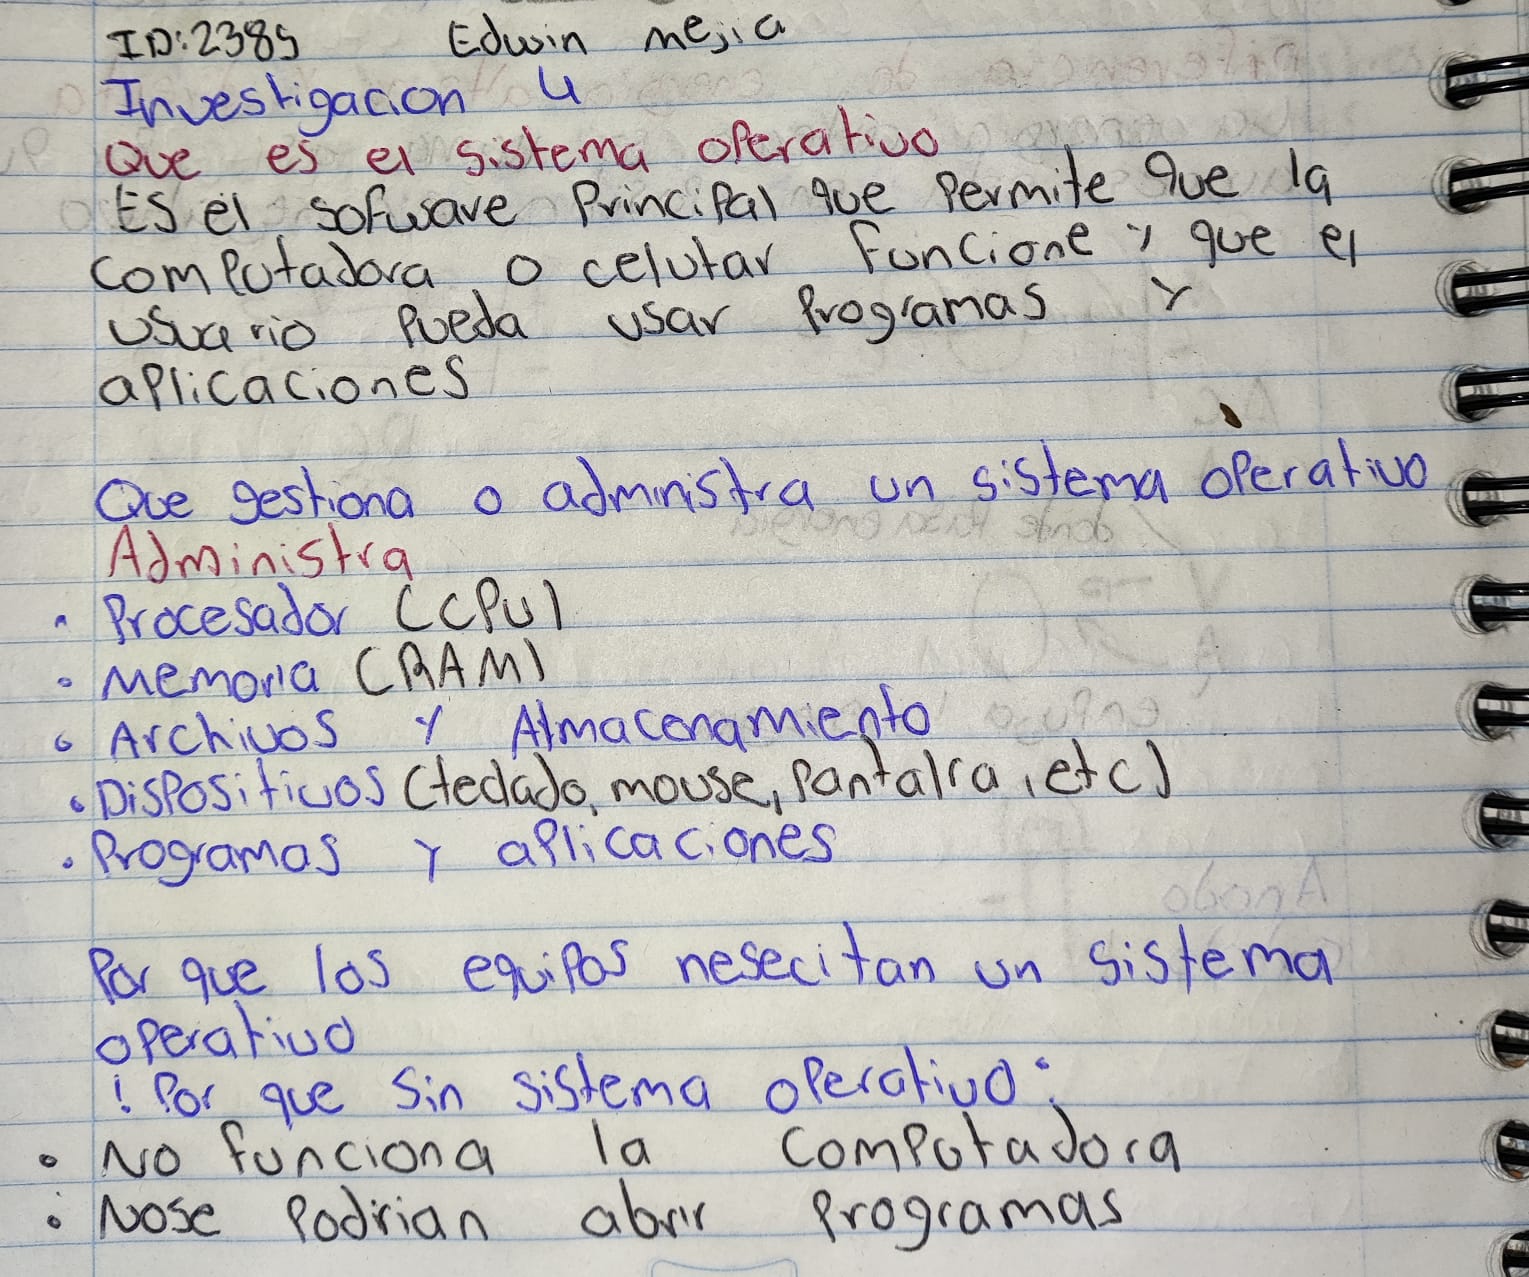 ID:2385 Edwin mejia
Investigacion 4
Que es el sistema operativo
Es el sofware Principal que Permite que la
Computadora o celular Funcione y que el
usuario Pueda usar Programas y
aplicaciones
Que gestiona o administra un sistema operativo
Administra
• Procesador (CPU)
• Memoria (RAM)
• Archivos y Almacenamiento
• Dispositivos (teclado, mouse, Pantalla, etc)
• Programas y aplicaciones
Por que los equipos nesecitan un sistema
operativo
! Por que Sin sistema operativo:
• No funciona la Computadora
• Nose Podrian abrir Programas